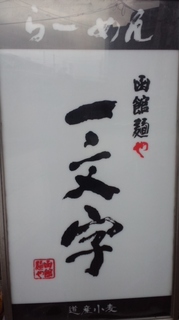 らーめん
函館麺や
一文字
道産小麦